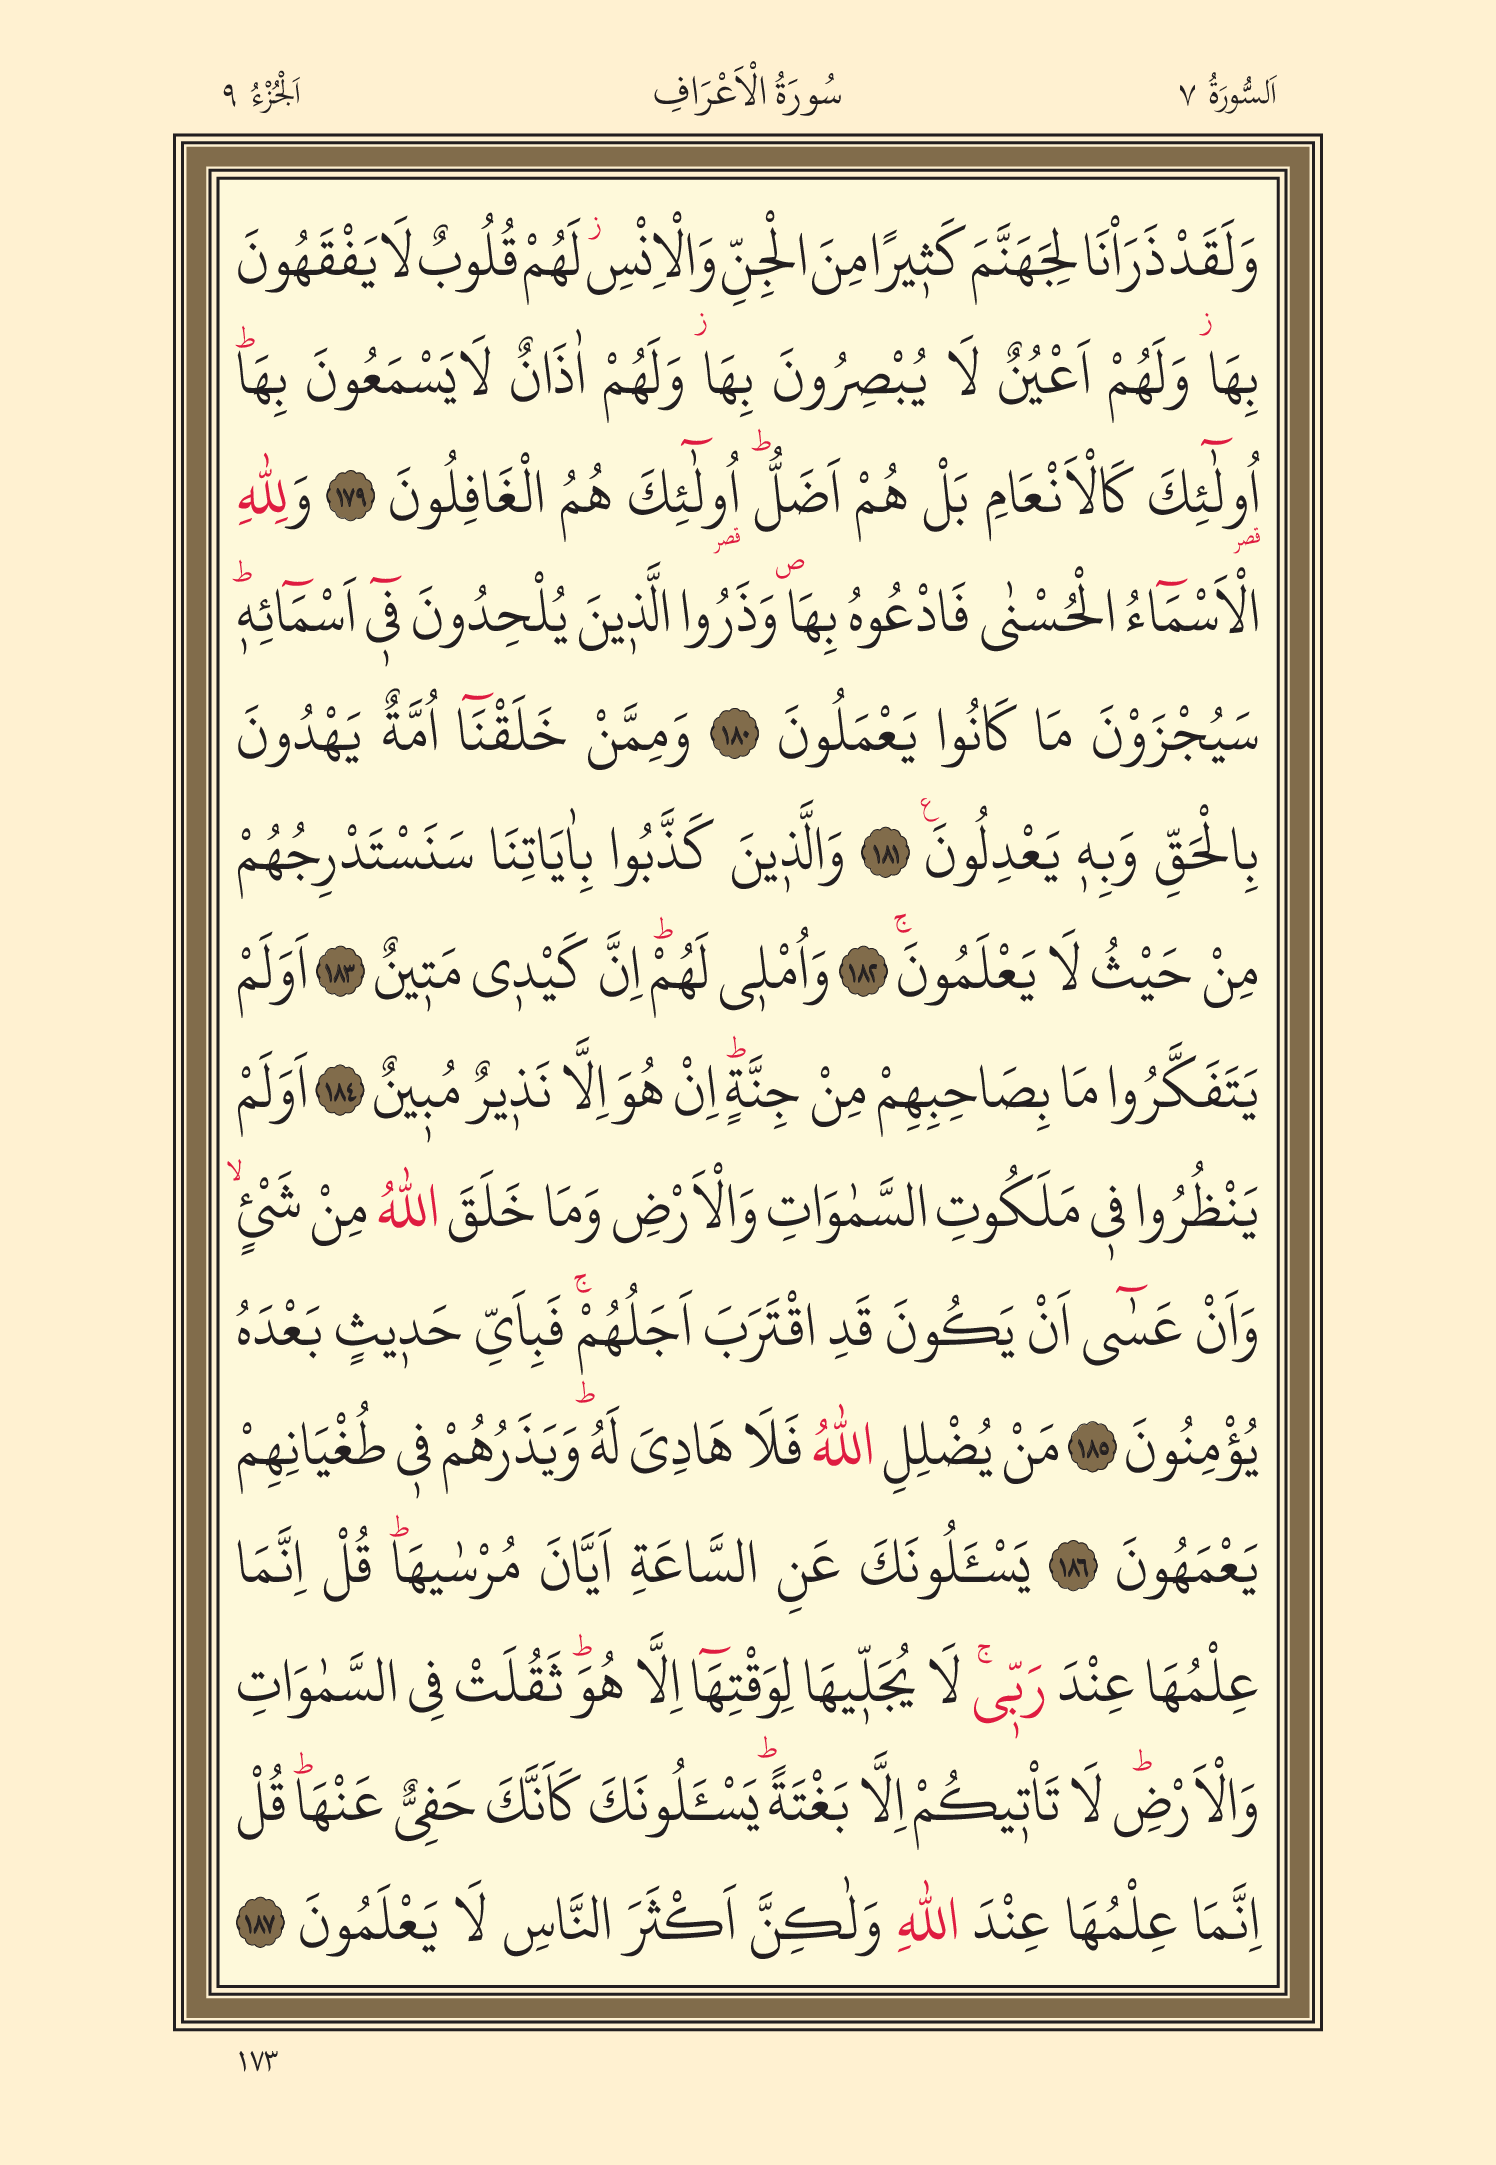 اَلسُّورَةُ ٧ سُورَةُ الْاَعْرَافِ اَلْجُزْءُ ٩
وَلَقَدْ ذَرَاْنَا لِجَهَنَّمَ كَثٖيرًا مِنَ الْجِنِّ وَالْاِنْسِ ز لَهُمْ قُلُوبٌ لَا يَفْقَهُونَ
بِهَا ز وَلَهُمْ اَعْيُنٌ لَا يُبْصِرُونَ بِهَا ز وَلَهُمْ اٰذَانٌ لَا يَسْمَعُونَ بِهَا ط
اُولٰٓئِكَ قصر كَالْاَنْعَامِ بَلْ هُمْ اَضَلُّ ط اُولٰٓئِكَ قصر هُمُ الْغَافِلُونَ ١٧٩ وَلِلّٰهِ
الْاَسْمَٓاءُ الْحُسْنٰى فَادْعُوهُ بِهَا ص وَذَرُوا الَّذٖينَ يُلْحِدُونَ فٖٓى اَسْمَٓائِهٖ ط
سَيُجْزَوْنَ مَا كَانُوا يَعْمَلُونَ ١٨٠ وَمِمَّنْ خَلَقْنَٓا اُمَّةٌ يَهْدُونَ
بِالْحَقِّ وَبِهٖ يَعْدِلُونَ ع ١٨١ وَالَّذٖينَ كَذَّبُوا بِاٰيَاتِنَا سَنَسْتَدْرِجُهُمْ
مِنْ حَيْثُ لَا يَعْلَمُونَ ج ١٨٢ وَاُمْلٖى لَهُمْ ط اِنَّ كَيْدٖى مَتٖينٌ ١٨٣ اَوَلَمْ
يَتَفَكَّرُوا مَا بِصَاحِبِهِمْ مِنْ جِنَّةٍ ط اِنْ هُوَ اِلَّا نَذٖيرٌ مُبٖينٌ ١٨٤ اَوَلَمْ
يَنْظُرُوا فٖى مَلَكُوتِ السَّمٰوَاتِ وَالْاَرْضِ وَمَا خَلَقَ اللّٰهُ مِنْ شَىْءٍ لا
وَاَنْ عَسٰٓى اَنْ يَكُونَ قَدِ اقْتَرَبَ اَجَلُهُمْ ج فَبِاَىِّ حَدٖيثٍ بَعْدَهُ
يُؤْمِنُونَ ١٨٥ مَنْ يُضْلِلِ اللّٰهُ فَلَا هَادِىَ لَهُ ط وَيَذَرُهُمْ فٖى طُغْيَانِهِمْ
يَعْمَهُونَ ١٨٦ يَسْـَٔلُونَكَ عَنِ السَّاعَةِ اَيَّانَ مُرْسٰيهَا ط قُلْ اِنَّمَا
عِلْمُهَا عِنْدَ رَبّٖى ج لَا يُجَلّٖيهَا لِوَقْتِهَٓا اِلَّا هُوَ ط ثَقُلَتْ فِى السَّمٰوَاتِ
وَالْاَرْضِ ط لَا تَاْتٖيكُمْ اِلَّا بَغْتَةً ط يَسْـَٔلُونَكَ كَاَنَّكَ حَفِىٌّ عَنْهَا ط قُلْ
اِنَّمَا عِلْمُهَا عِنْدَ اللّٰهِ وَلٰكِنَّ اَكْثَرَ النَّاسِ لَا يَعْلَمُونَ ١٨٧
١٧٣